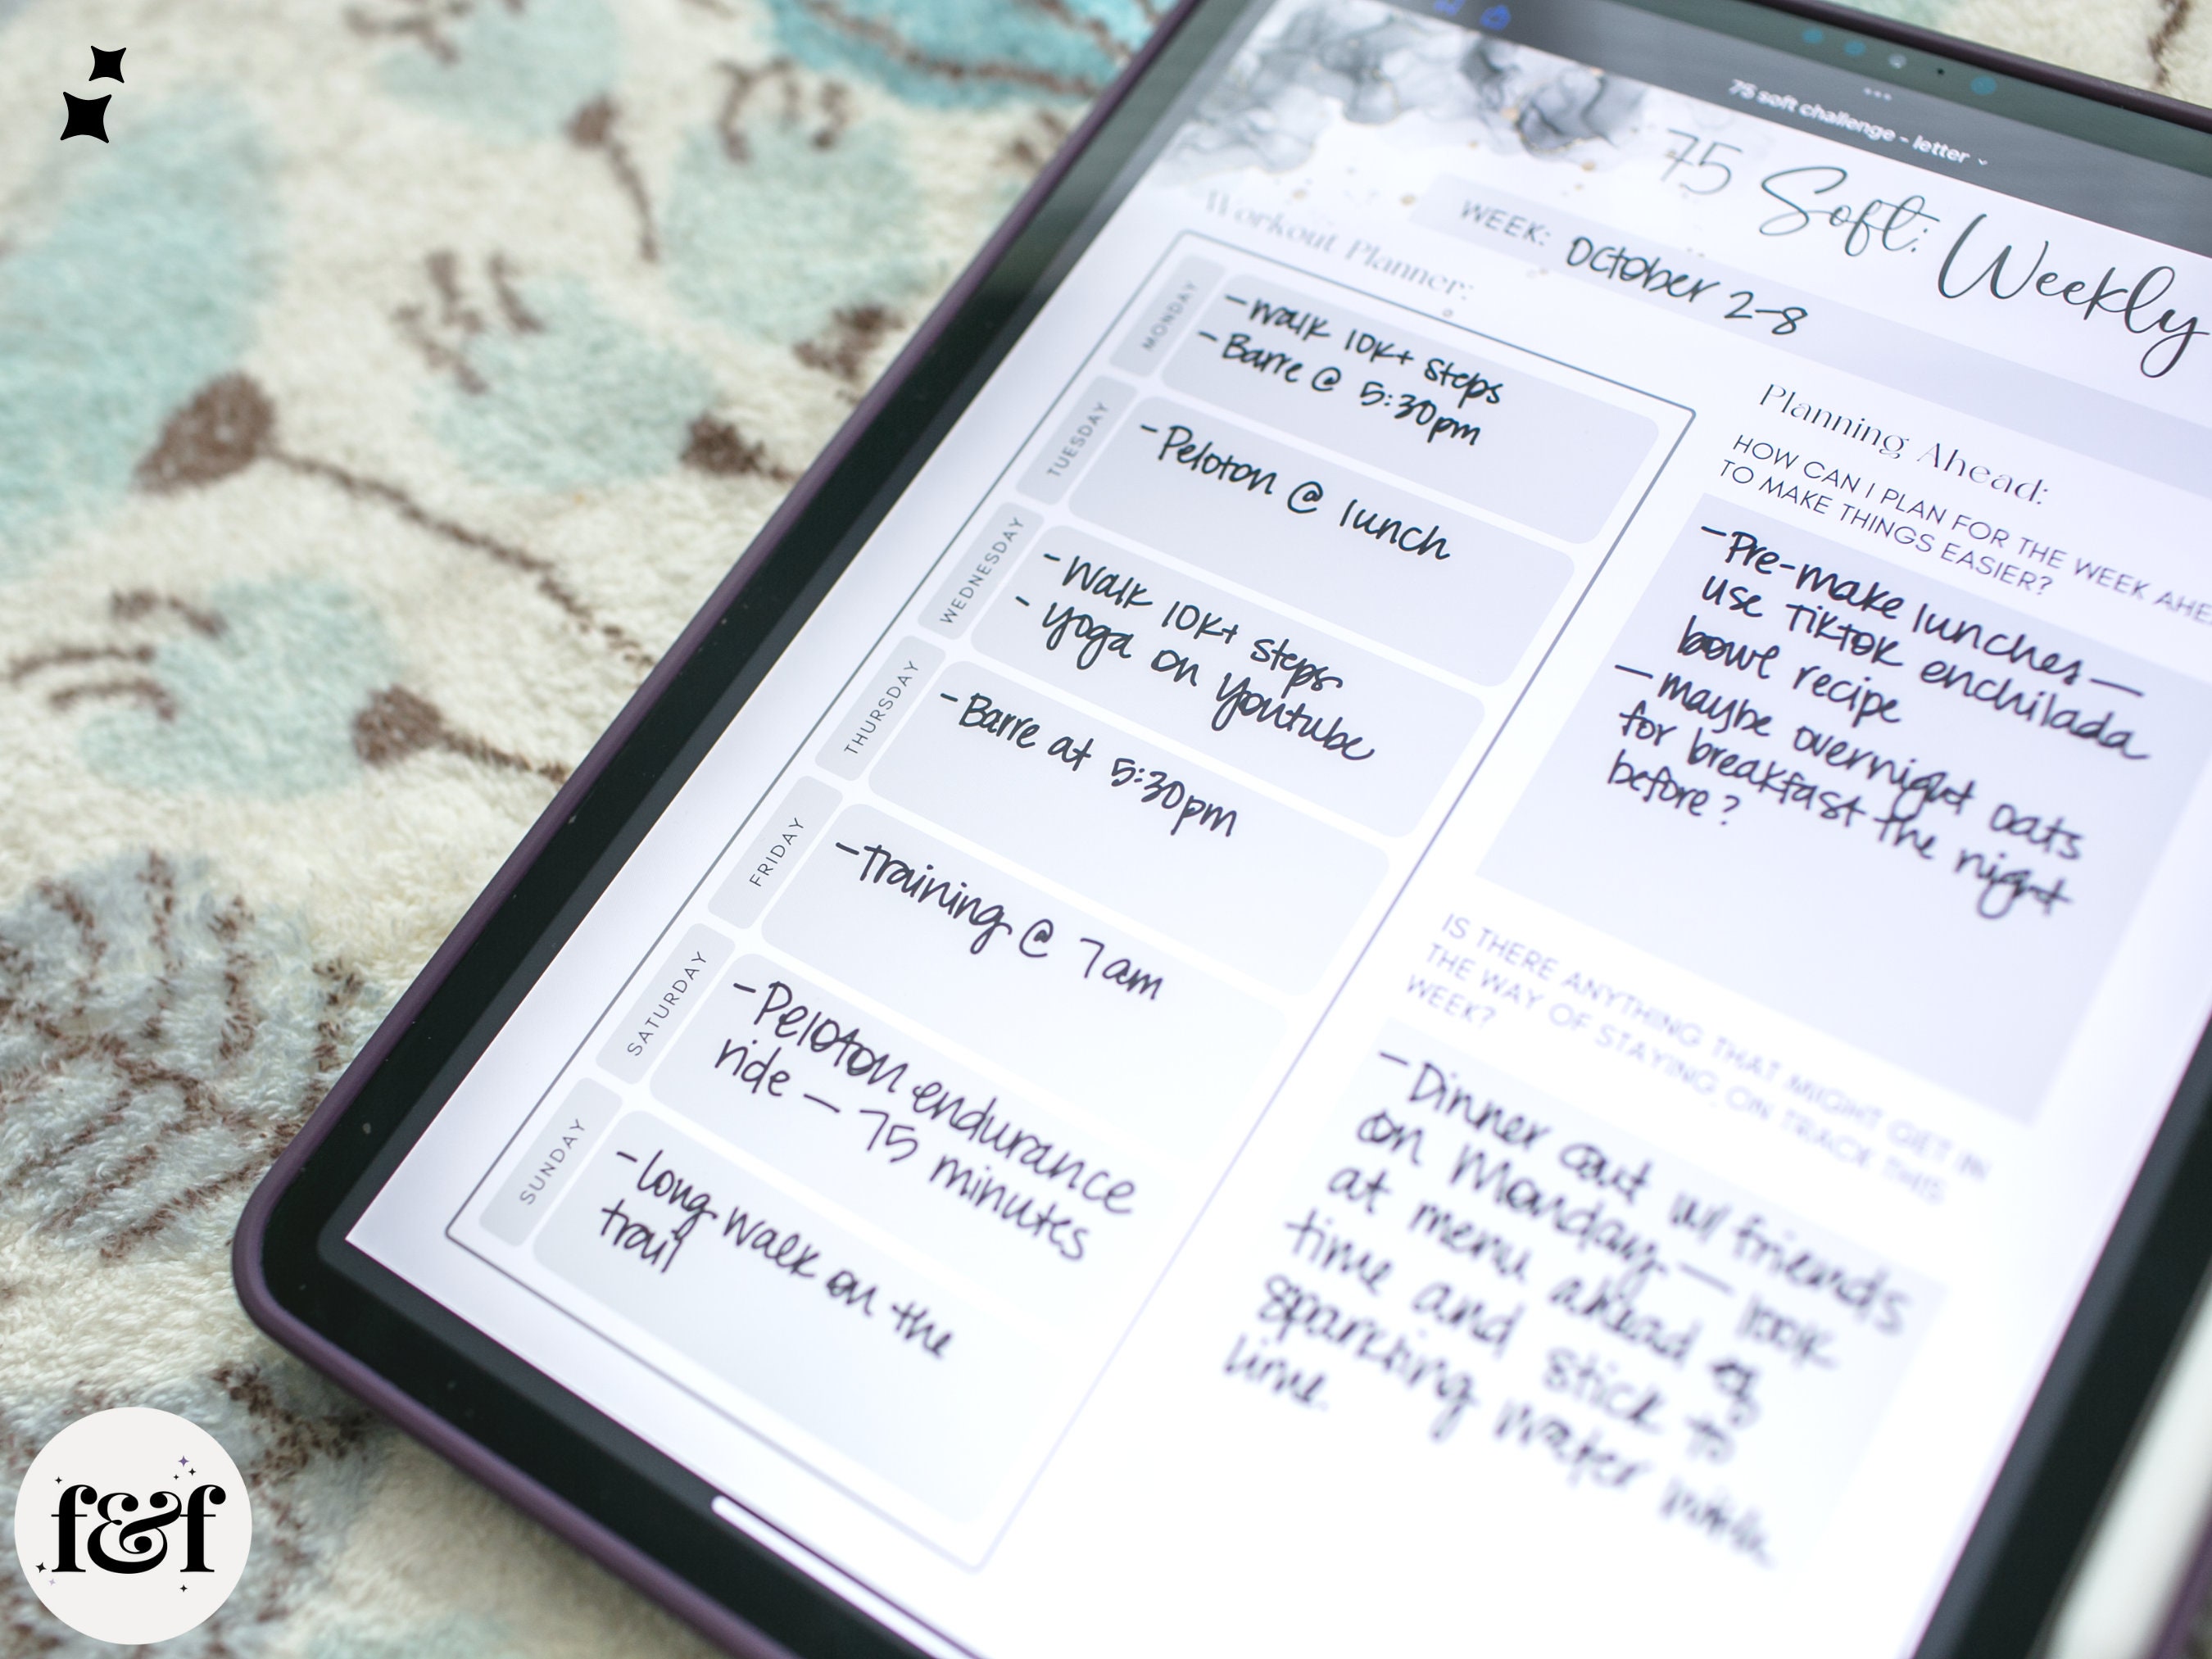 75 soft challenge - letter
75 Soft: Weekly
WEEK: October 2-8
Workout Planner:
MONDAY
- walk 10k+ steps
- Barre @ 5:30pm
TUESDAY
- Peloton @ lunch
WEDNESDAY
- Walk 10k+ steps
- yoga on youtube
THURSDAY
- Barre at 5:30pm
FRIDAY
- Training @ 7am
SATURDAY
- Peloton endurance
ride — 75 minutes
SUNDAY
- long walk on the
trail
Planning Ahead:
HOW CAN I PLAN FOR THE WEEK AHE
TO MAKE THINGS EASIER?
- Pre-make lunches —
use TikTok enchilada
bowl recipe
- maybe overnight oats
for breakfast the night
before?
IS THERE ANYTHING THAT MIGHT GET IN
THE WAY OF STAYING ON TRACK THIS
WEEK?
- Dinner out w/ friends
on Monday — look
at menu ahead of
time and stick to
sparkling water with
lime.
f&f